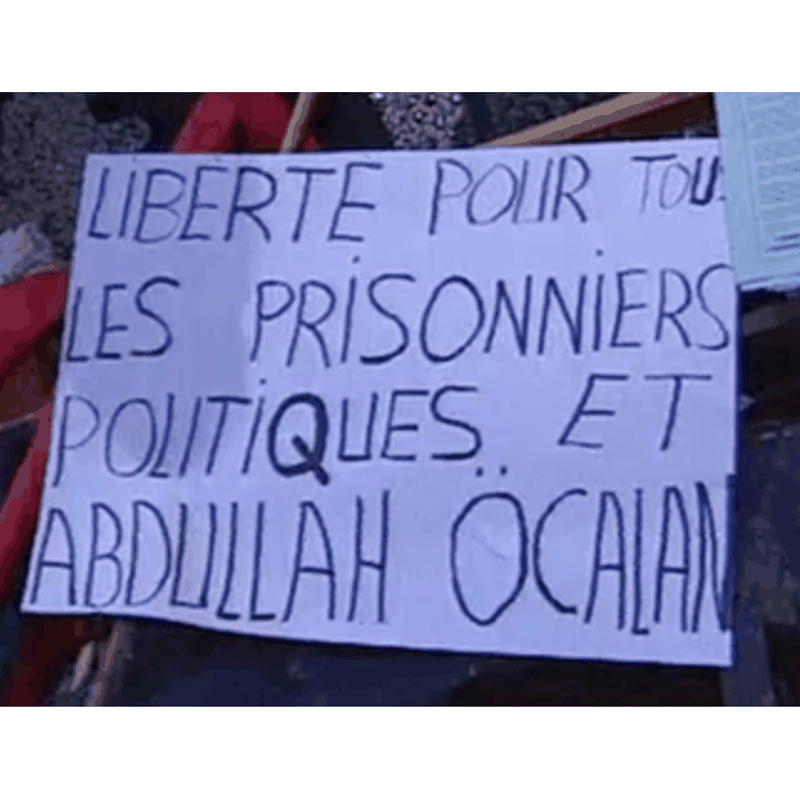 LIBERTE POUR TOUS
LES PRISONNIERS
POLITIQUES ET
ABDULLAH ÖCALAN